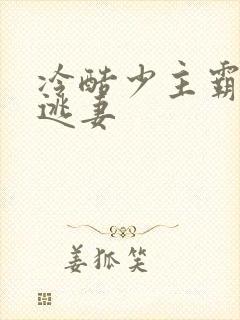 冷酷少主霸
逃妻
姜狐笑